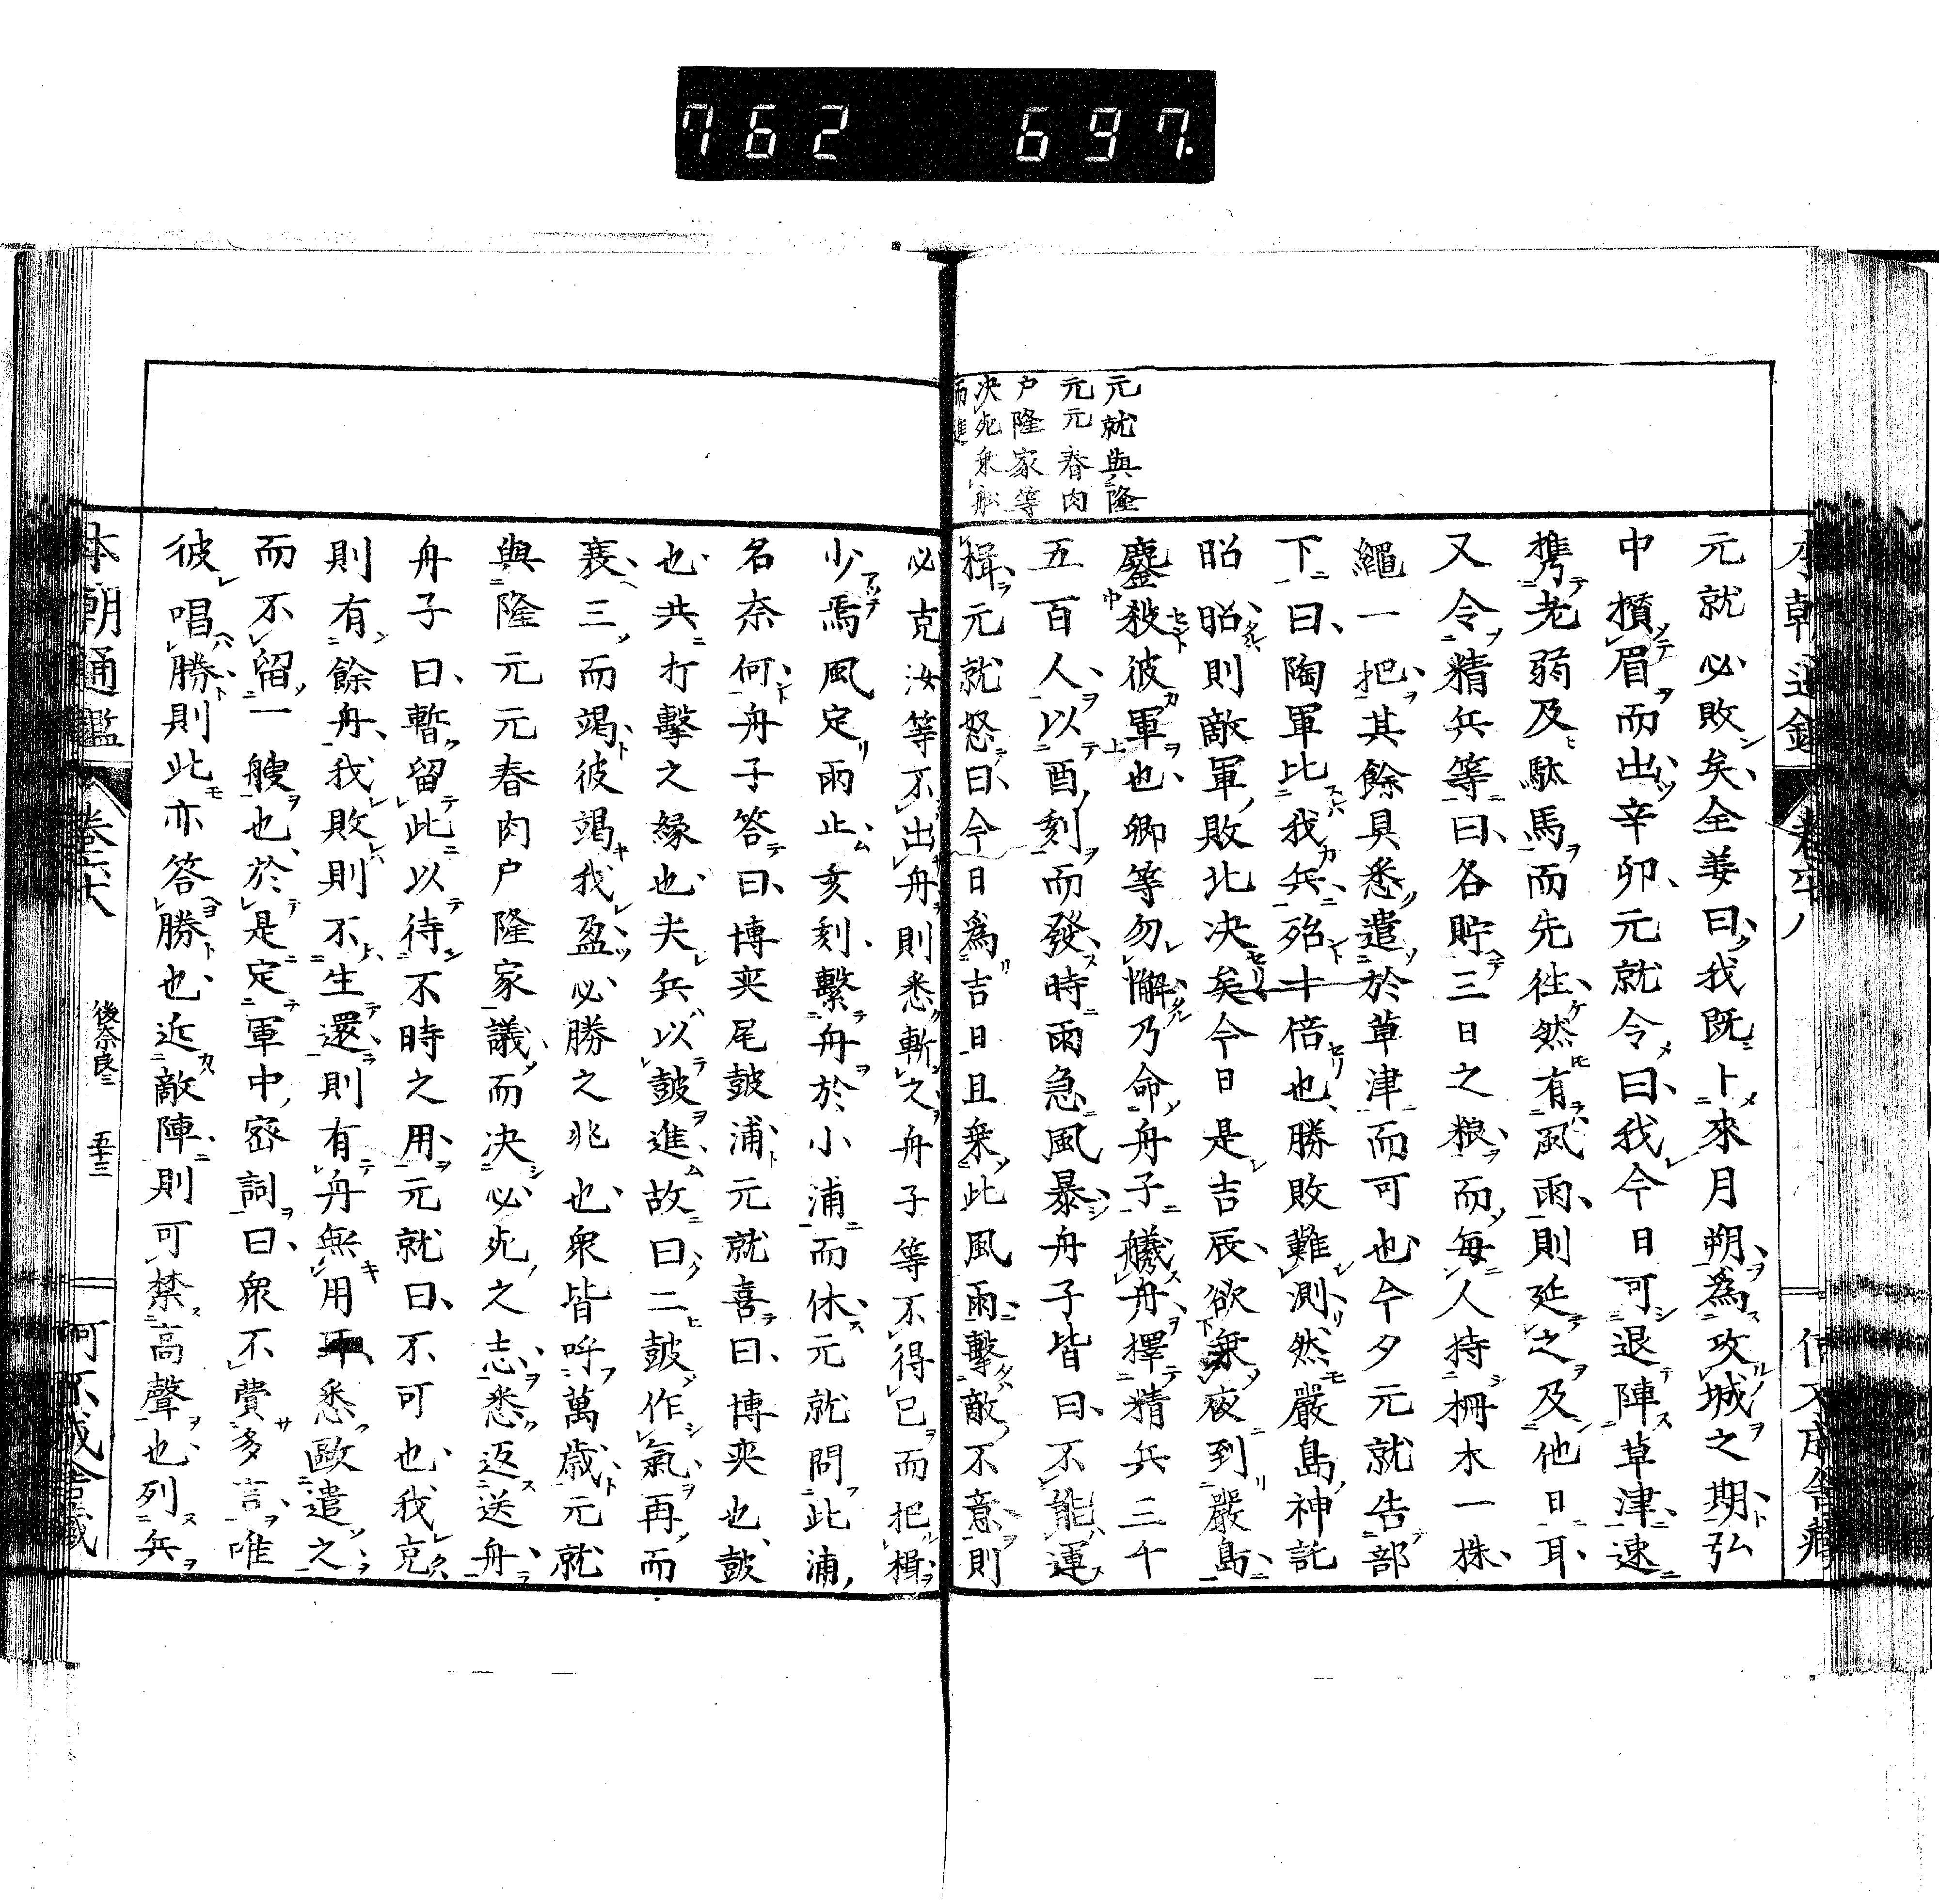 762 697.
元就與隆
元元春肉
户隆家等
决死乗舩
而進
元就必敗矣全姜曰我既卜來月朔爲攻城之期弘
中攅眉而出辛卯元就令曰我今日可退陣草津速
携老弱及駄馬而先徃然有風雨則延之及他日耳
又令精兵等曰各貯三日之粮而毎人持柵木一株
繩一把其餘具悉遣於草津而可也今夕元就告部
下曰陶軍比我兵殆十倍也勝敗難測然嚴島神託
昭昭則敵軍敗北决矣今日是吉辰欲乗夜到嚴島
鏖殺彼軍也卿等勿懈乃命舟子艤舟擇精兵三千
五百人以酉刻而發時雨急風暴舟子皆曰不能運
楫元就怒曰今日爲吉日且乗此風雨擊敵不意則
必克汝等不出舟則悉斬之舟子等不得已而把楫
少焉風定雨止亥刻繫舟於小浦而休元就問此浦
名奈何舟子答曰博奕尾鼓浦元就喜曰博奕也鼓
也共打擊之緣也夫兵以鼓進故曰二鼓作氣再而
衰三而竭彼竭我盈必勝之兆也衆皆呼萬歳元就
與隆元元春肉户隆家議而决必死之志悉返送舟
舟子曰暫留此以待不時之用元就曰不可也我克
則有餘舟我敗則不生還則有舟無用耳悉毆遣之
而不留一艘也於是定軍中密詞曰衆不費多言唯
彼唱勝則此亦答勝也近敵陣則可禁高聲也列兵
本朝通鑑 卷六十八 後奈良三 五十三